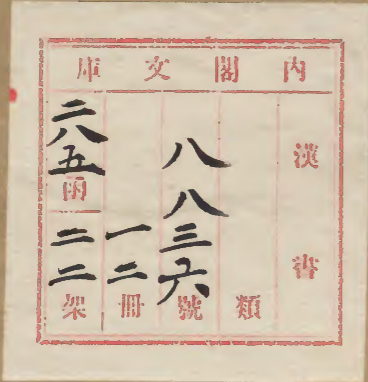 内閣文庫
漢書
類
八八三六號
一二冊
二八五函
二二架